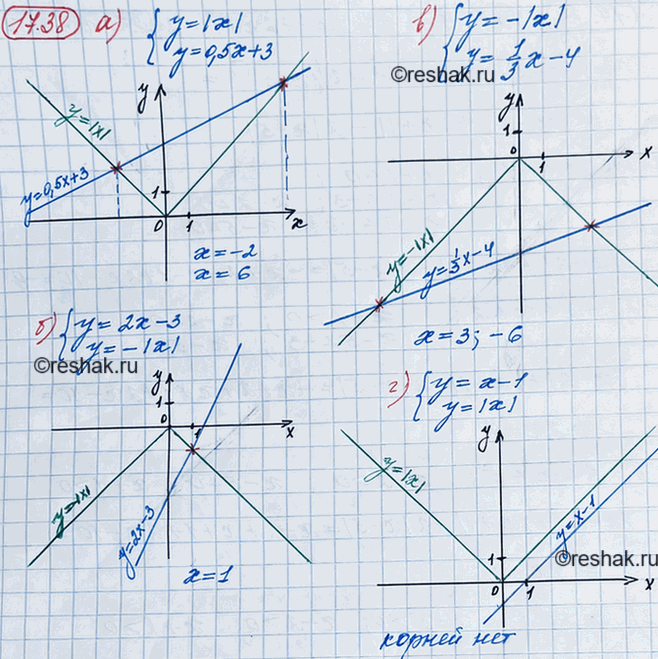 17.38 а) { y=|x|
y=0,5x+3
y
y=|x|
y=0,5x+3
1
0 1 x
x=-2
x=6
в) { y=-|x|
y=1/3x-4
©reshak.ru
y
1
0 1 x
y=-|x|
y=1/3x-4
x=3; -6
б) { y=2x-3
y=-|x|
©reshak.ru
y
1
0 1 x
y=-|x|
y=2x-3
x=1
г) { y=x-1
y=|x|
y
y=|x|
y=x-1
©reshak.ru
1
0 1 x
корней нет